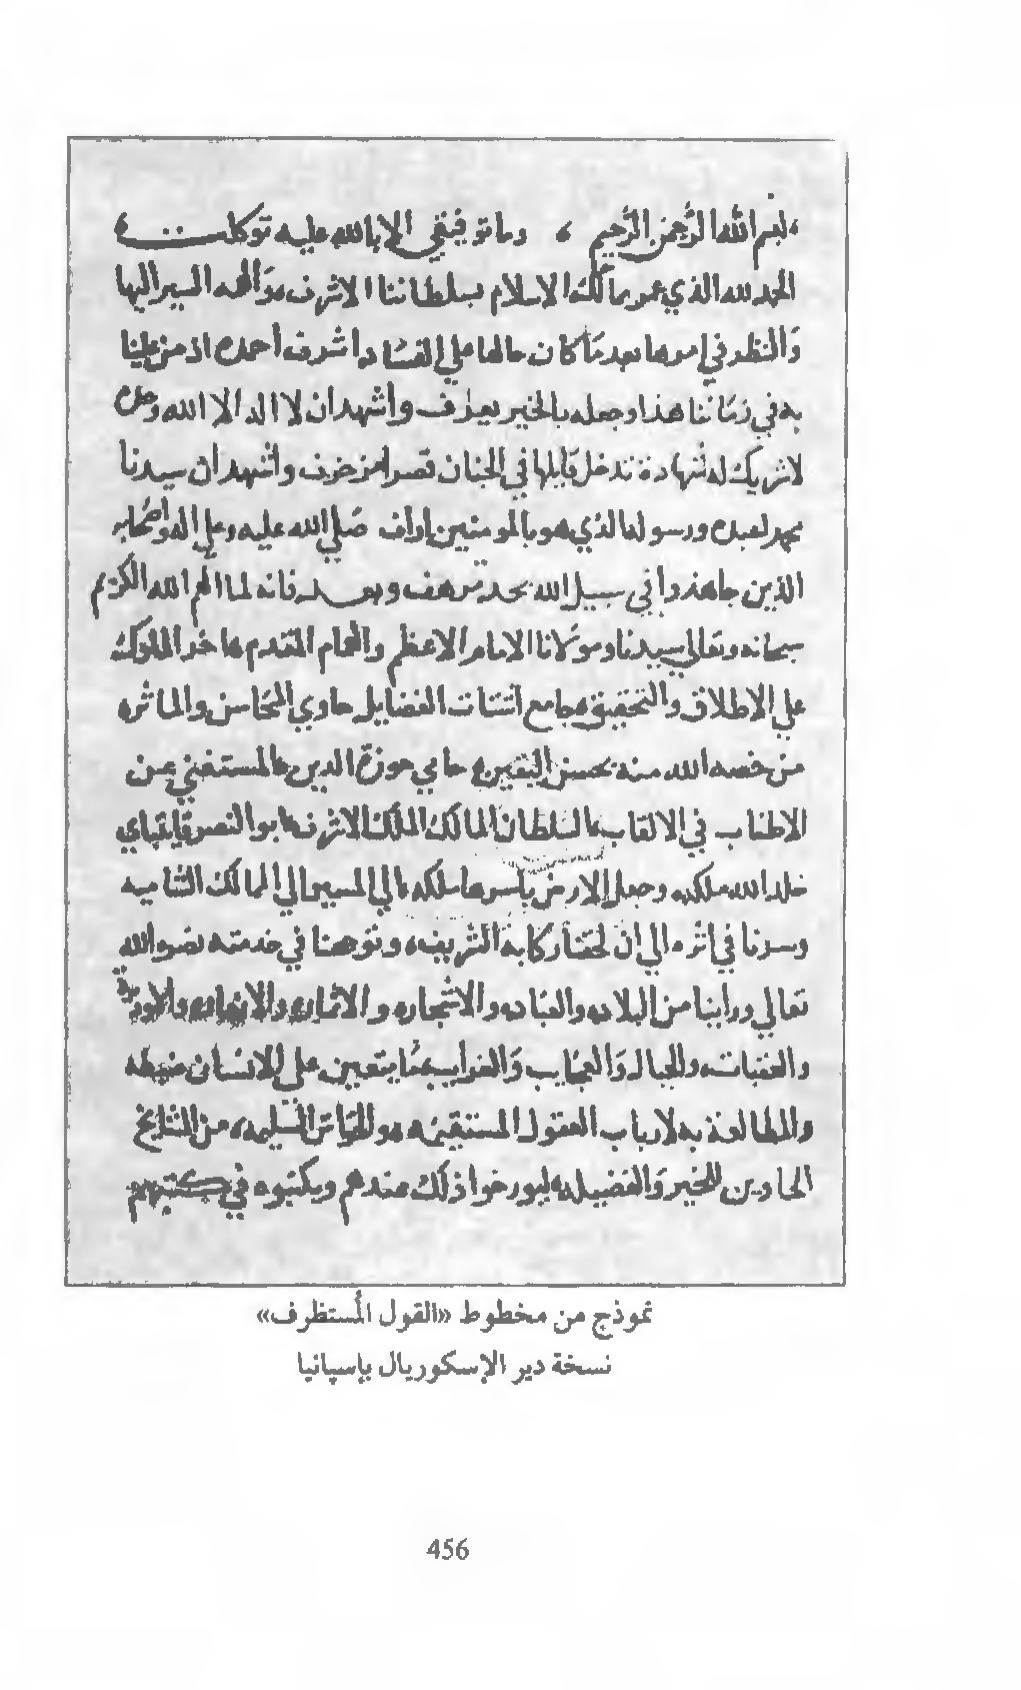 بسم الله الرحمن الرحيم ، وما توفيقي الا بالله عليه توكلت
الحمد لله الذي عمر ممالك الاسلام بسلطاننا الاشرف، وَالهمه السير اليها
وَالنظر في امورها بعد مَا كان حالها علي الفسَاد اشرف احمده اذ من علينا
به في زمَاننا هذا وجعله بالخير يعرَف واشهد ان لا اله الا الله وحده
لا شريك له شهادة تدخل قايلها في الجنان قصرا مزخرف واشهد ان سيدنا
محمد عبده ورسوله الذي هو بالمومنين اراف صَلي الله عليه وعلي اله وَاصحابه
الذين جاهدوا في سبيل الله بحد مرهف وبعد فانه لما الهم الله الكريم
سبحانه وتعالي سيدنا ومولانا الامام الاعظم والهمام المقدم، فاخر الملوك
علي الاطلاق والتحقيق، جامع اشتات الفضايل حاوي المحَاسن والماثره
من خصه الله منه بحسن اليقين، حامي حوزة الدين، المستغني عن
الاطناب في الالقاب، السلطان المالك الملك الاشرف، ابو النصر قايتباي
خلد الله ملكه، وجعل الارض باسرها ملكه، الي المسير الي الممالك الشاميه
وسرنا في اثره، الي ان لحقنا ركابه الشريف، وتوجهنا في خدمته نصره الله
تعالي ورأينا من البلاد، والعبَاد، والاشجار، والاثمار، والانهار، والاودية
والعقبات، والجبال وَالعجَايب وَالغرايب، مما يتعين علي الانسان ضبطه
والمطالعة به لارباب العقول المستقيمه، والحواس السليمه، من المشايخ
الحاوين للخير وَالفضيله، ليورخوا ذلك عندهم ويكتبوه في كتبهم
نموذج من مخطوط «القول المُستظرف»
نسخة دير الإسكوريال بإسپانيا
456